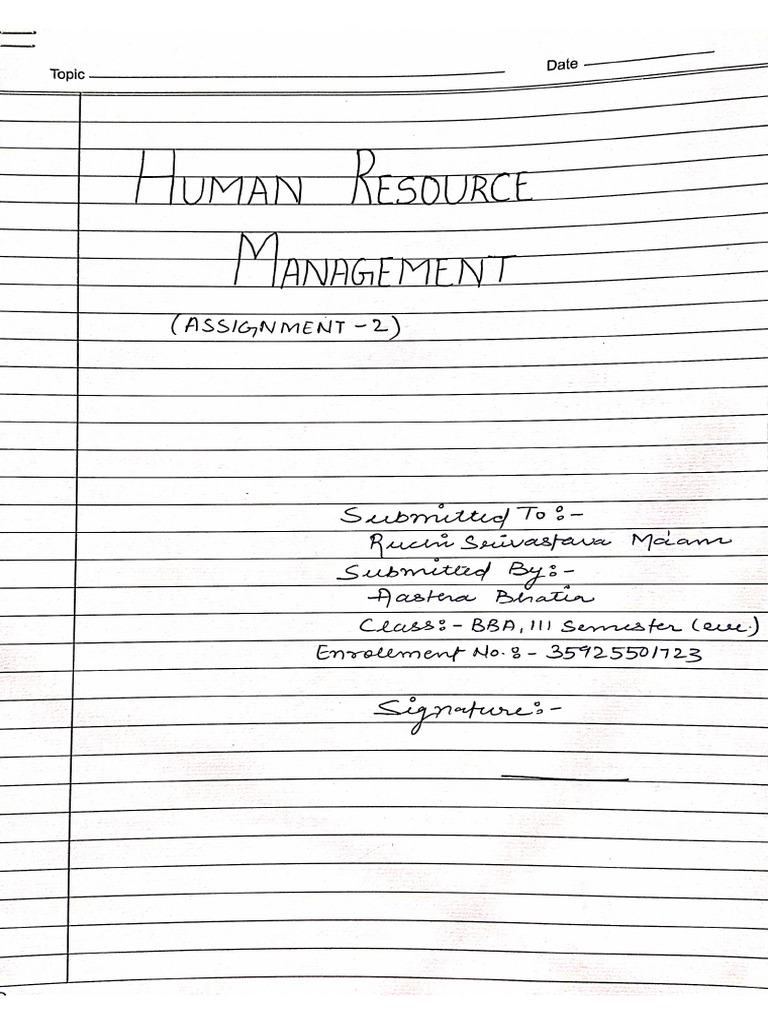 Topic
Date
HUMAN RESOURCE
MANAGEMENT
(ASSIGNMENT-2)
Submitted To:-
Ruchi Srivastava Ma'am
Submitted By:-
Aastha Bhatia
Class:- BBA, III Semester (eve.)
Enrollment No.:- 35925501723
Signature:-